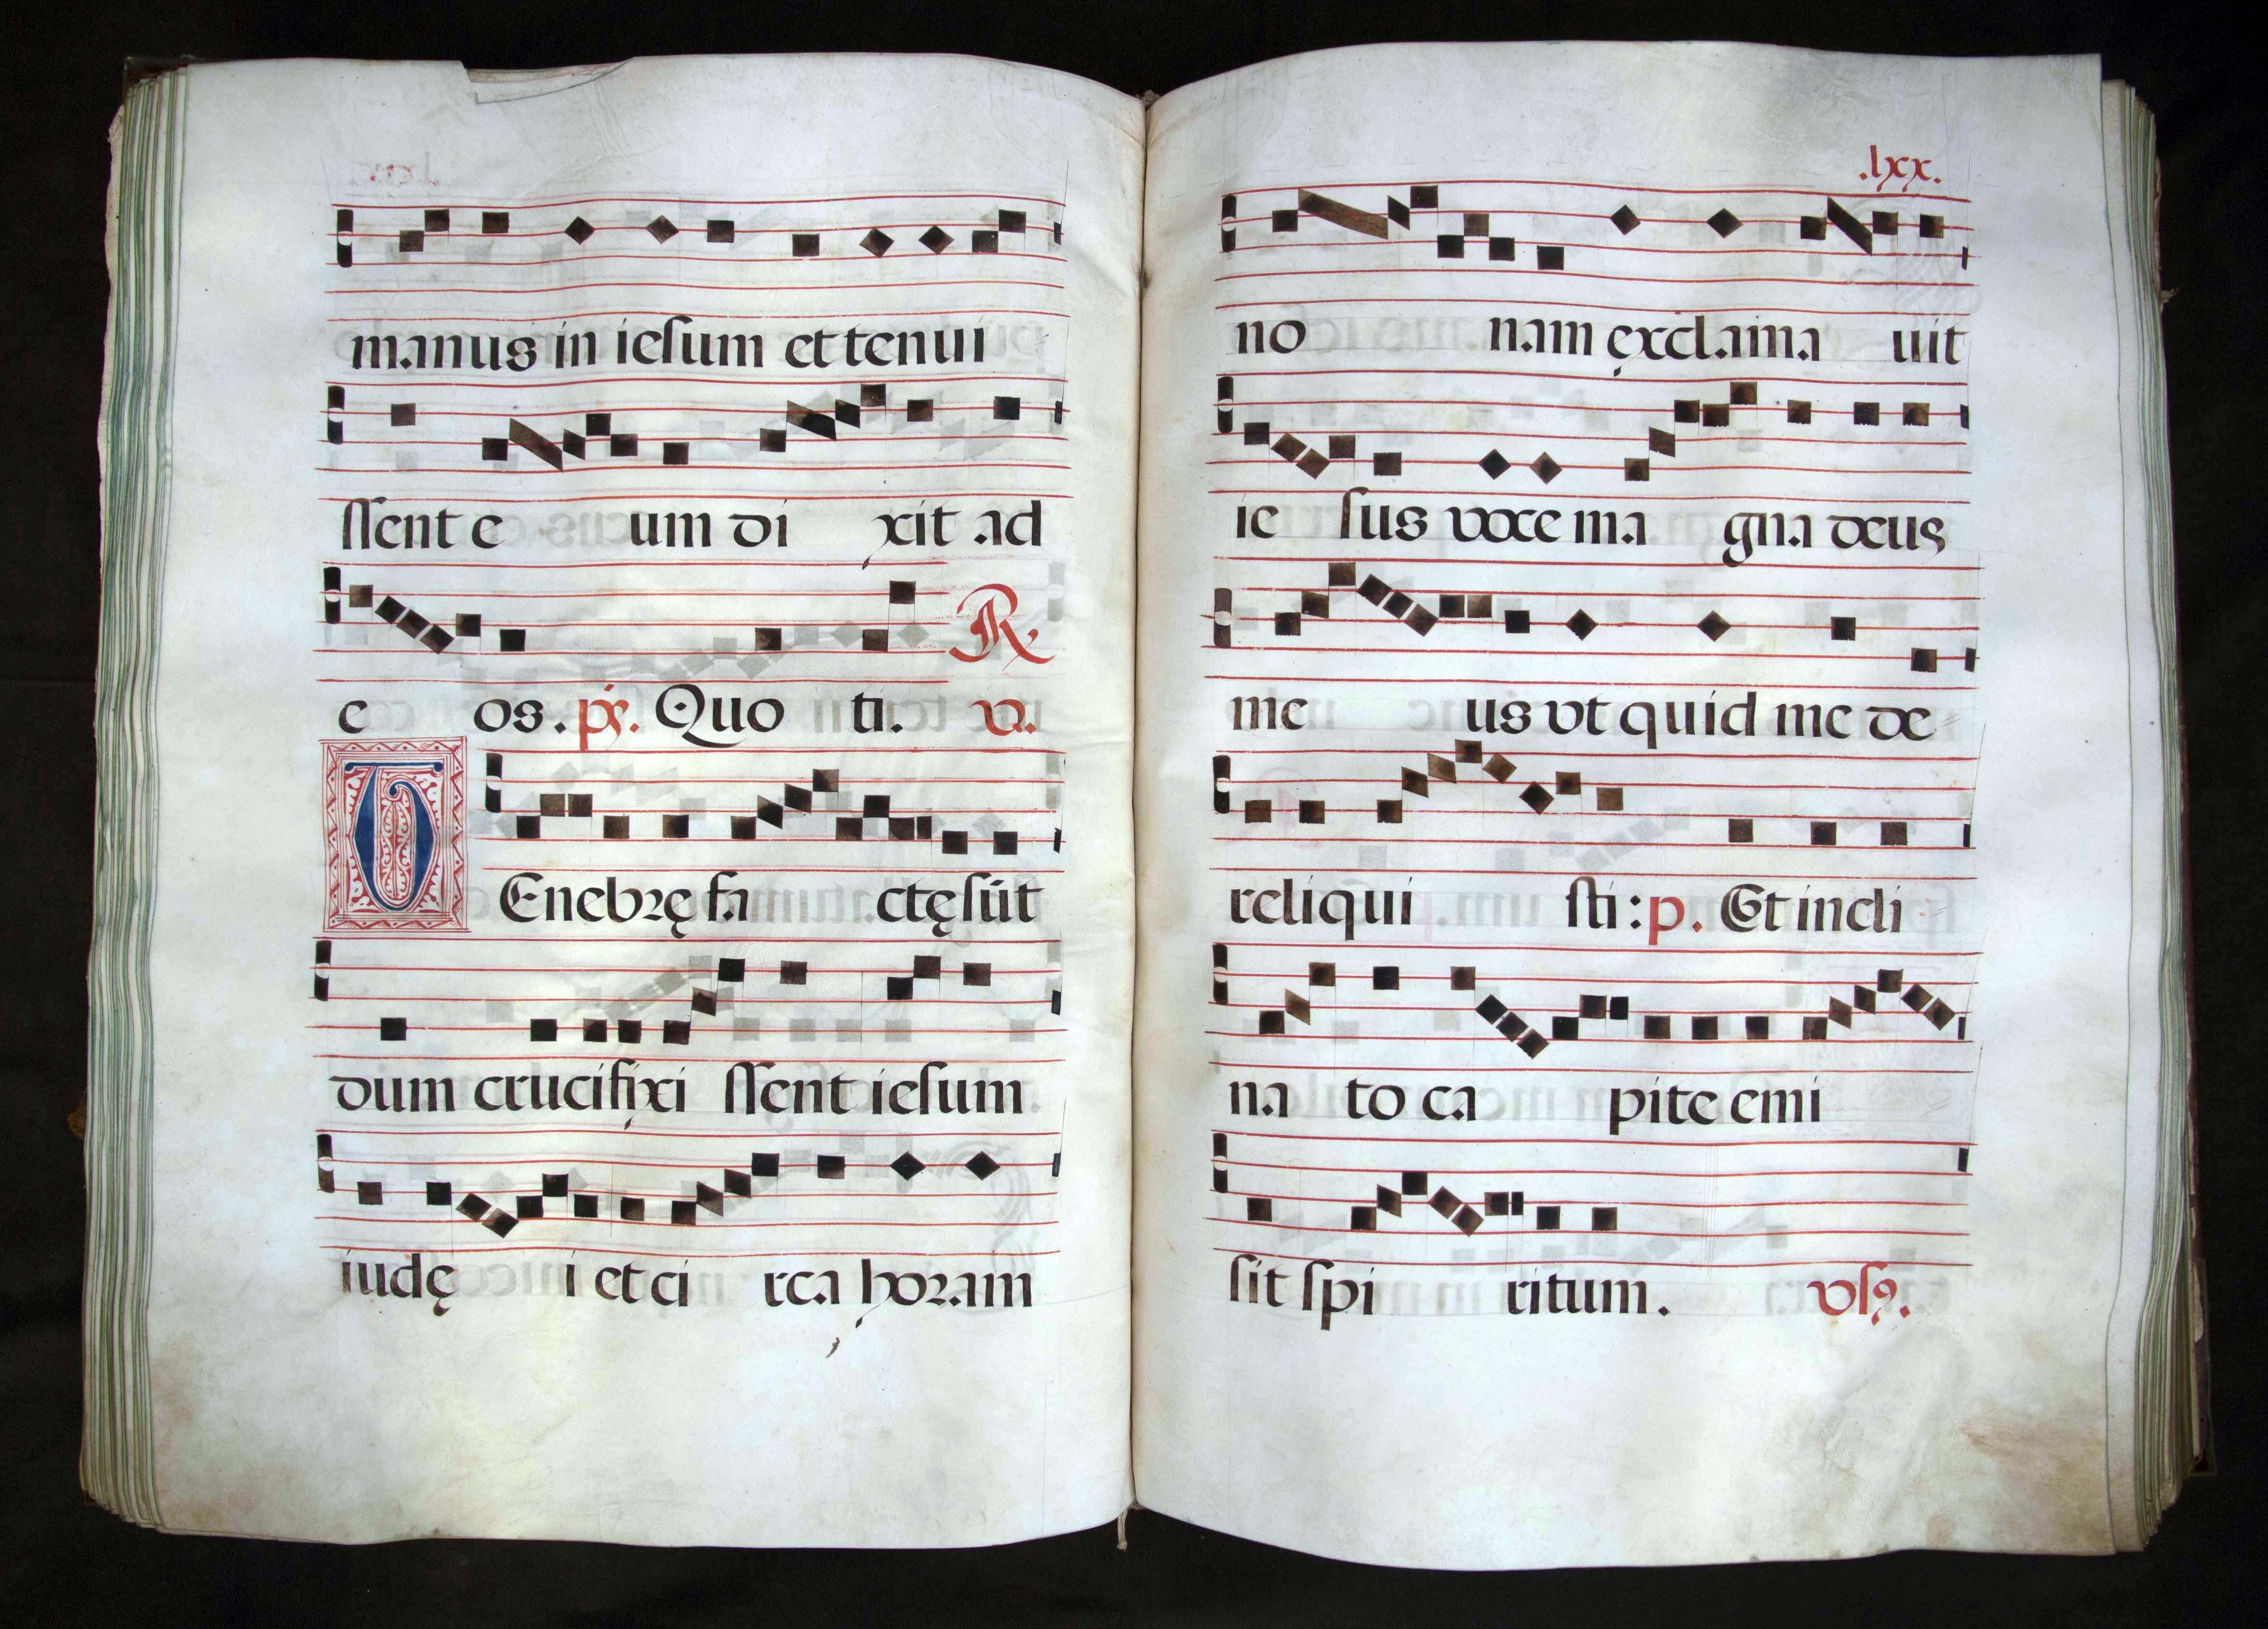 manus in iesum et tenui
ssent e um di xit ad
R.
e os. ps. Quo ti. v.
TEnebrę fa ctę sūt
dum crucifixi ssent iesum
iudę i et ci rca horam
.lxx.
no nam exclama uit
ie sus voce ma gna deus
me us vt quid me de
reliqui sti: p. Et incli
na to ca pite emi
sit spi ritum.